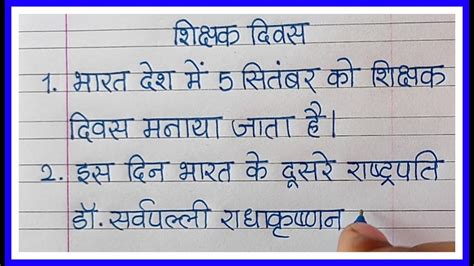 शिक्षक दिवस
1. भारत देश में 5 सितंबर को शिक्षक
दिवस मनाया जाता है।
2. इस दिन भारत के दूसरे राष्ट्रपति
डॉ. सर्वपल्ली राधाकृष्णन